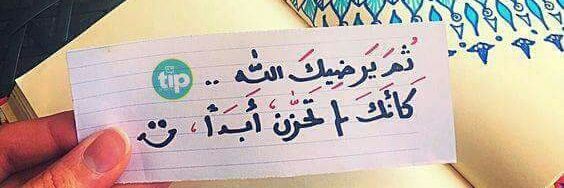 ثمَ يَرضيكَ الله ..
كأنكَ لم تَحزن، أَبَدَاً،
tip